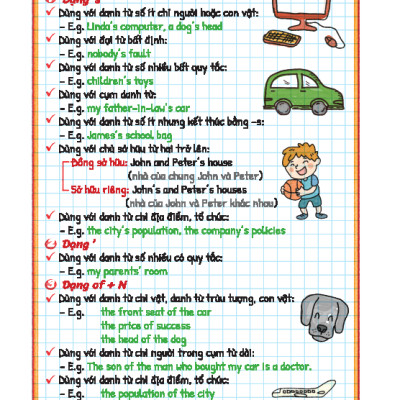 Dạng 's
Dùng với danh từ số ít chỉ người hoặc con vật:
– E.g. Linda's computer, a dog's head
Dùng với đại từ bất định:
– E.g. nobody's fault
Dùng với danh từ số nhiều bất quy tắc:
– E.g. children's toys
Dùng với cụm danh từ:
– E.g. my father-in-law's car
Dùng với danh từ số ít nhưng kết thúc bằng –s:
– E.g. James's school bag
Dùng với chủ sở hữu từ hai trở lên:
Đồng sở hữu: John and Peter's house
(nhà của chung John và Peter)
Sở hữu riêng: John's and Peter's houses
(nhà của John và Peter khác nhau)
Dùng với danh từ chỉ địa điểm, tổ chức:
– E.g. the city's population, the company's policies
Dạng '
Dùng với danh từ số nhiều có quy tắc:
– E.g. my parents' room
Dạng of + N
Dùng với danh từ chỉ vật, danh từ trừu tượng, con vật:
– E.g. the front seat of the car
the price of success
the head of the dog
Dùng với danh từ chỉ người trong cụm từ dài:
– E.g. The son of the man who bought my car is a doctor.
Dùng với danh từ chỉ địa điểm, tổ chức:
– E.g. the population of the city